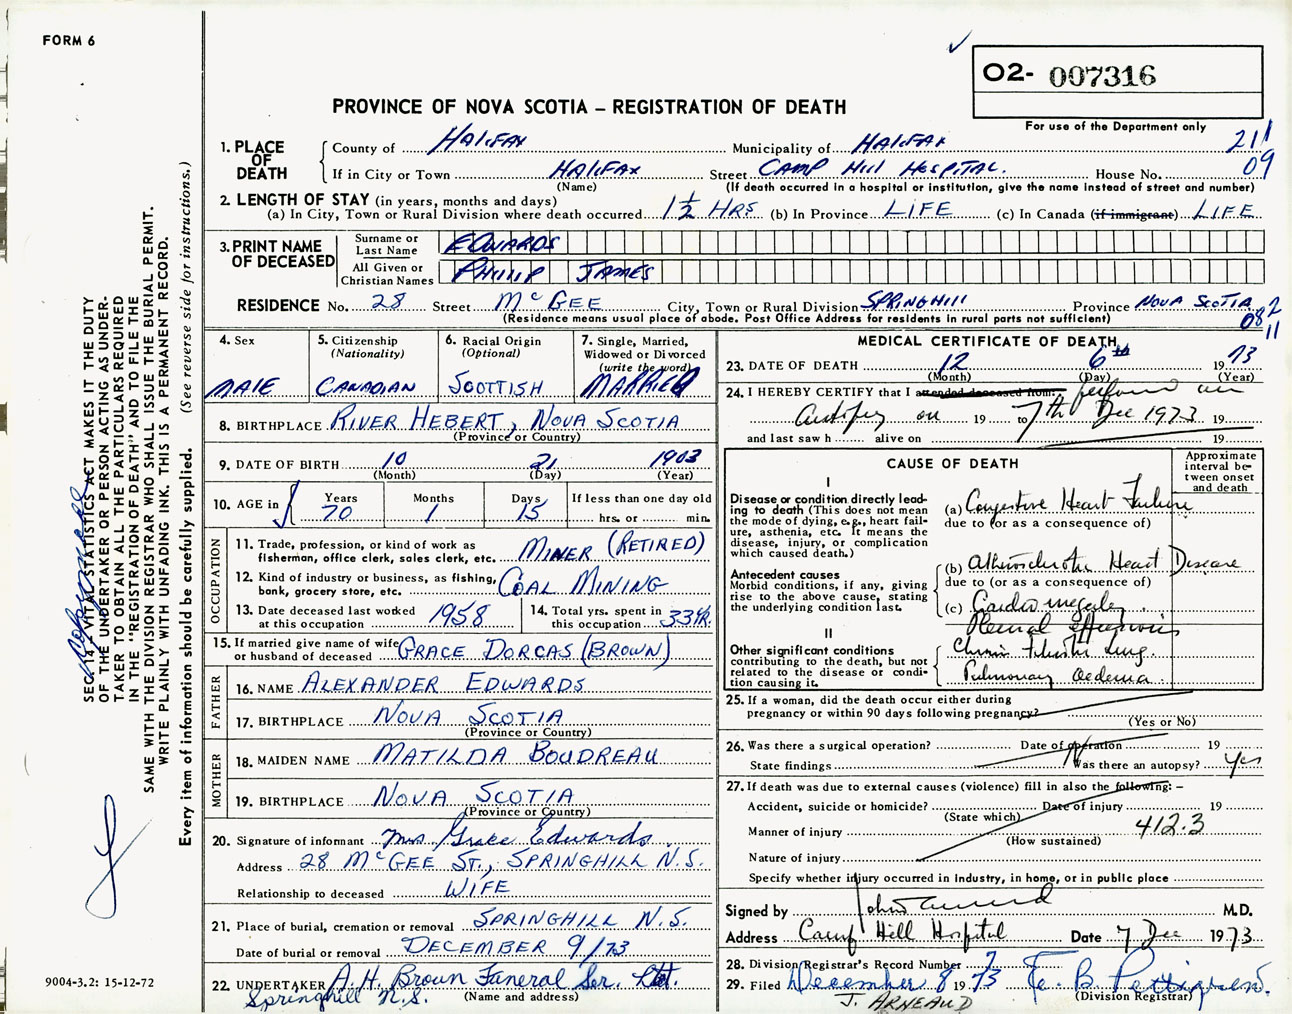 FORM 6
O2- 007316
For use of the Department only
PROVINCE OF NOVA SCOTIA – REGISTRATION OF DEATH
211
09
1. PLACE OF DEATH
County of HALIFAX Municipality of HALIFAX
If in City or Town HALIFAX Street CAMP HILL HOSPITAL. House No.
(Name) (If death occurred in a hospital or institution, give the name instead of street and number)
2. LENGTH OF STAY (in years, months and days)
(a) In City, Town or Rural Division where death occurred 1½ HRS (b) In Province LIFE (c) In Canada (if immigrant) LIFE
3. PRINT NAME OF DECEASED
Surname or Last Name EDWARDS
All Given or Christian Names PHILIP JAMES
RESIDENCE No. 28 Street McGEE City, Town or Rural Division SPRINGHILL Province NOVA SCOTIA
(Residence means usual place of abode. Post Office Address for residents in rural parts not sufficient)
082
11
4. Sex MALE
5. Citizenship (Nationality) CANADIAN
6. Racial Origin (Optional) SCOTTISH
7. Single, Married, Widowed or Divorced (write the word) MARRIED
8. BIRTHPLACE RIVER HEBERT, NOVA SCOTIA
(Province or Country)
9. DATE OF BIRTH 10 21 1903
(Month) (Day) (Year)
10. AGE in Years 70 Months 1 Days 15 If less than one day old hrs. or min.
OCCUPATION
11. Trade, profession, or kind of work as fisherman, office clerk, sales clerk, etc. MINER (RETIRED)
12. Kind of industry or business, as fishing, bank, grocery store, etc. COAL MINING
13. Date deceased last worked at this occupation 1958
14. Total yrs. spent in this occupation 33 YR.
15. If married give name of wife or husband of deceased GRACE DORCAS (BROWN)
FATHER
16. NAME ALEXANDER EDWARDS
17. BIRTHPLACE NOVA SCOTIA
(Province or Country)
MOTHER
18. MAIDEN NAME MATILDA BOUDREAU
19. BIRTHPLACE NOVA SCOTIA
(Province or Country)
20. Signature of informant Mrs Grace Edwards.
Address 28 McGEE ST., SPRINGHILL N.S.
Relationship to deceased WIFE
21. Place of burial, cremation or removal SPRINGHILL N.S.
Date of burial or removal DECEMBER 9/73
22. UNDERTAKER A.H. Brown Funeral Ser. Ltd.
Springhill N.S. (Name and address)
MEDICAL CERTIFICATE OF DEATH
23. DATE OF DEATH 12 6th 1973
(Month) (Day) (Year)
24. I HEREBY CERTIFY that I attended deceased from: perform an
Autopsy on 19 to 7th Dec 1973 19
and last saw h alive on 19
CAUSE OF DEATH
Approximate interval between onset and death
I
Disease or condition directly leading to death (This does not mean the mode of dying, e.g., heart failure, asthenia, etc. It means the disease, injury, or complication which caused death.)
(a) Congestive Heart Failure
due to (or as a consequence of)
Antecedent causes
Morbid conditions, if any, giving rise to the above cause, stating the underlying condition last.
(b) Atherosclerotic Heart Disease
due to (or as a consequence of)
(c) Cardiomegaly
Pleural effusions
II
Other significant conditions contributing to the death, but not related to the disease or condition causing it.
Lung.
Pulmonary Oedema
25. If a woman, did the death occur either during pregnancy or within 90 days following pregnancy?
(Yes or No)
26. Was there a surgical operation? Date of operation 19
State findings Was there an autopsy? Yes
27. If death was due to external causes (violence) fill in also the following: –
Accident, suicide or homicide? Date of injury 19
(State which)
Manner of injury 412.3
(How sustained)
Nature of injury
Specify whether injury occurred in industry, in home, or in public place
Signed by John M.D.
Address Camp Hill Hospital Date 7 Dec 1973.
28. Division Registrar's Record Number 7
29. Filed December 8 1973 E. B. Pettigrew.
(Division Registrar)
J. ARNEAUD
SEC. 14 – VITAL STATISTICS ACT MAKES IT THE DUTY
OF THE UNDERTAKER OR PERSON ACTING AS UNDER-
TAKER TO OBTAIN ALL THE PARTICULARS REQUIRED
IN THE "REGISTRATION OF DEATH" AND TO FILE THE
SAME WITH THE DIVISION REGISTRAR WHO SHALL ISSUE THE BURIAL PERMIT.
WRITE PLAINLY WITH UNFADING INK. THIS IS A PERMANENT RECORD.
Every item of information should be carefully supplied. (See reverse side for instructions.)
9004-3.2: 15-12-72